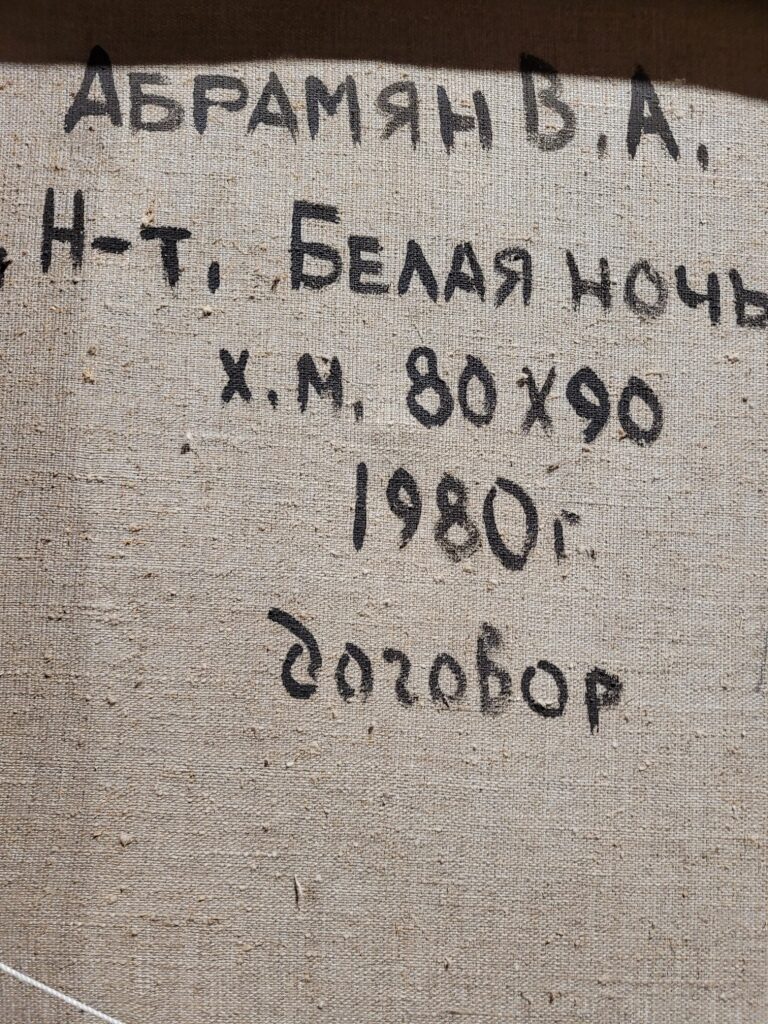 АБРАМЯН В.А.
Н-т. БЕЛАЯ НОЧЬ
х.м. 80х90
1980г.
договор